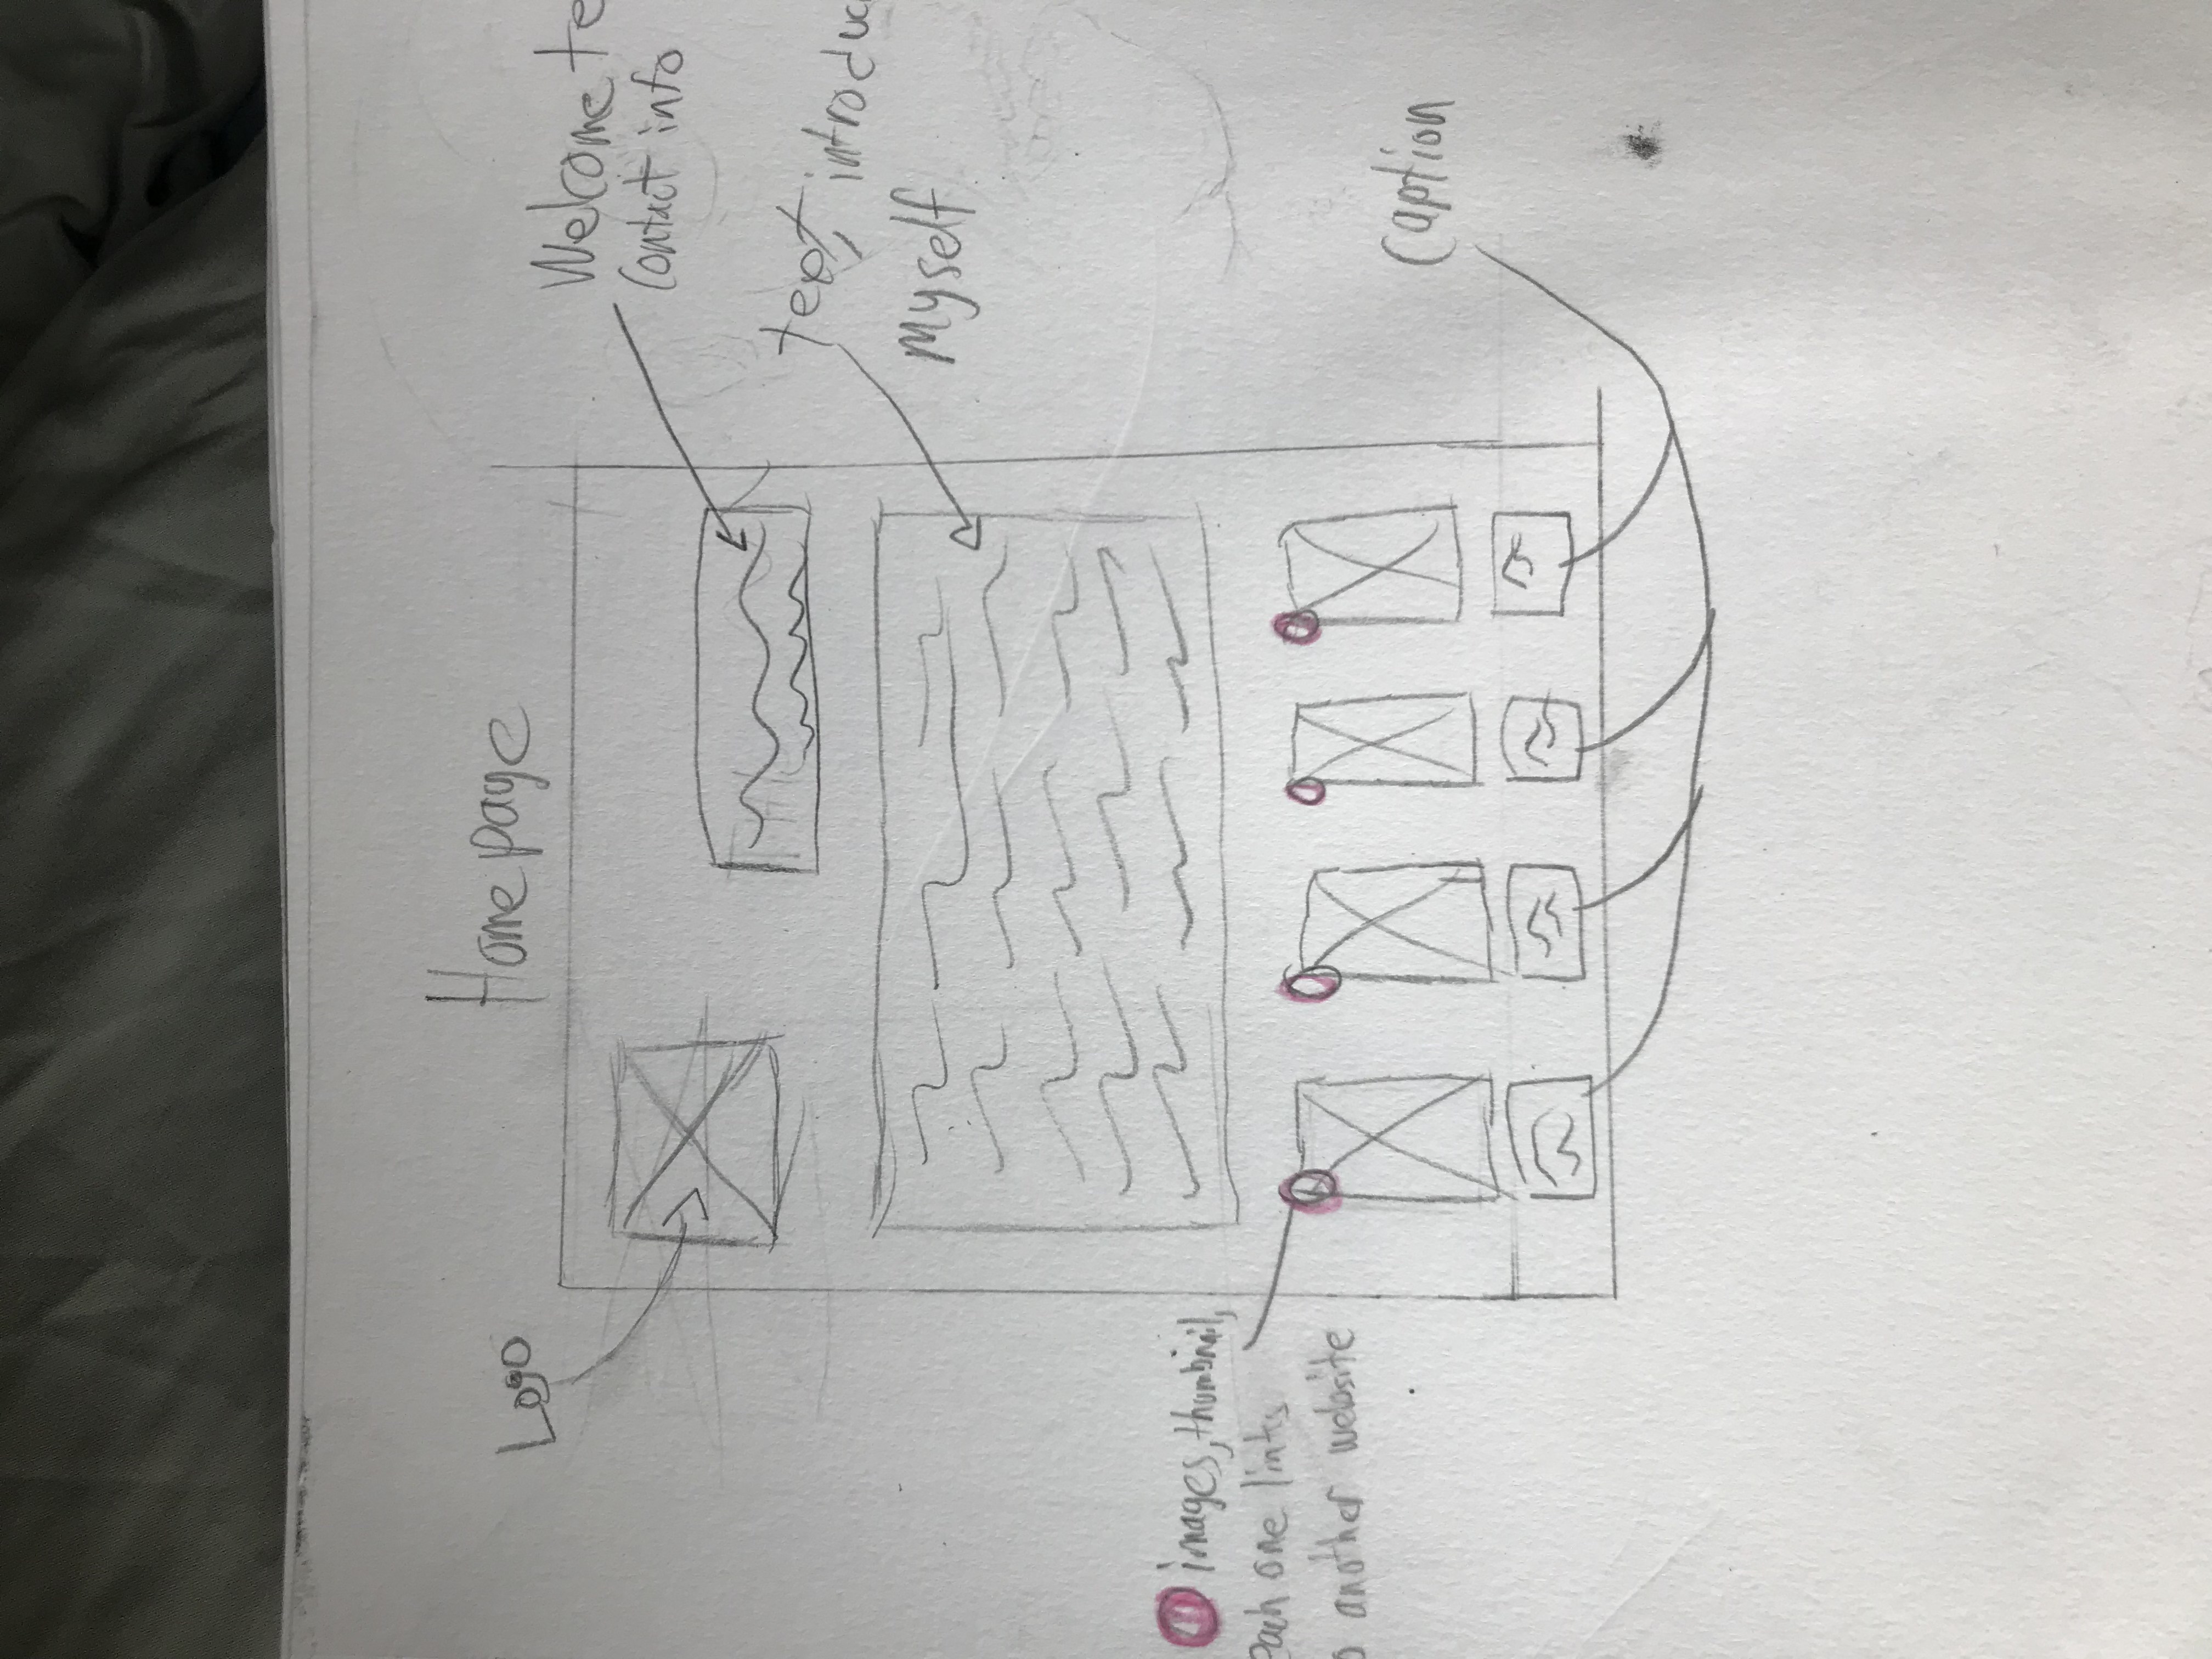 Homepage
Logo
Welcome te
Contact info
text introduc
Myself
images, thumbnail,
each one links
another website
Caption